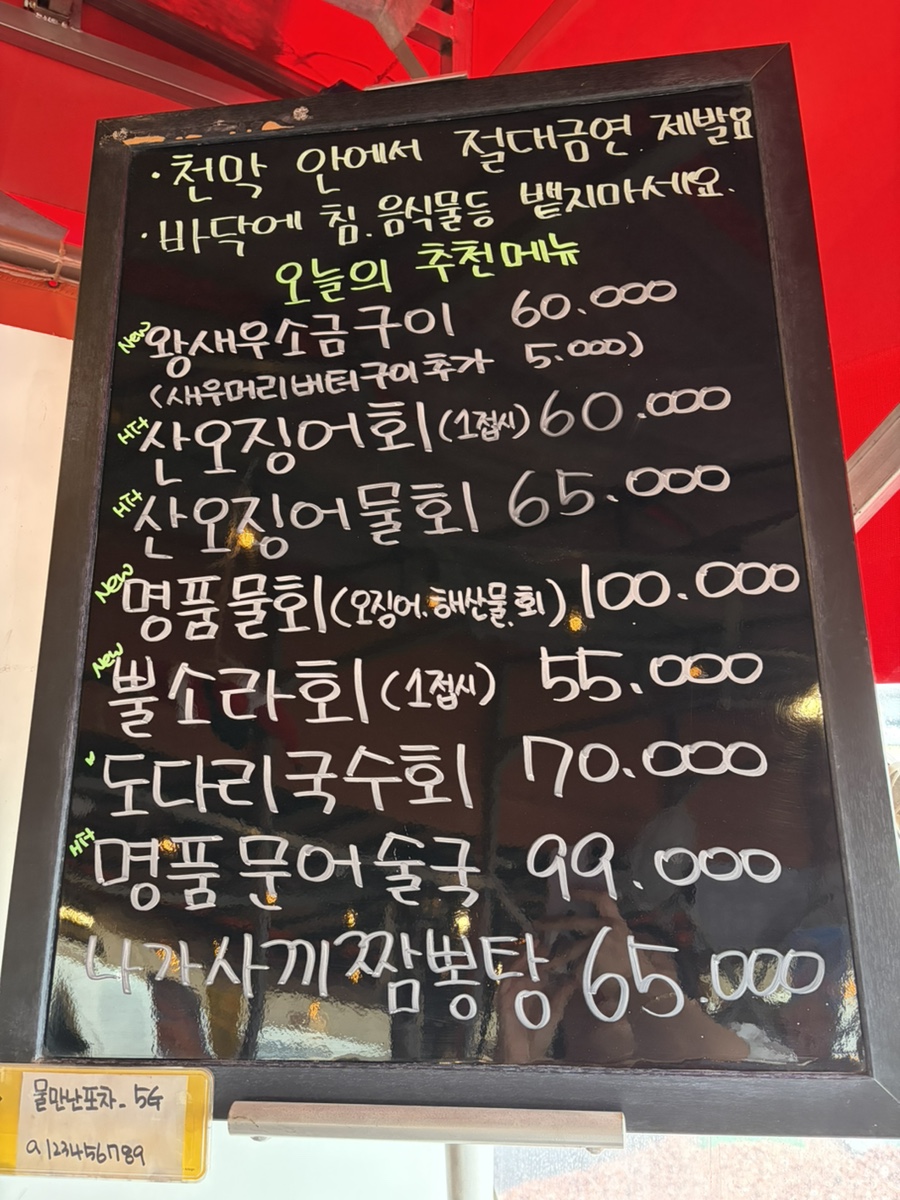 · 천막 안에서 절대금연. 제발요
· 바닥에 침. 음식물등 뱉지마세요.
오늘의 추천메뉴
New 왕새우소금구이 60.000
(새우머리버터구이추가 5.000)
HIT 산오징어회(1접시) 60.000
HIT 산오징어물회 65.000
New 명품물회(오징어.해산물.회) 100.000
New 뿔소라회(1접시) 55.000
도다리국수회 70.000
HIT 명품문어술국 99.000
나가사끼짬뽕탕 65.000
물만난포차_5G
a123456789